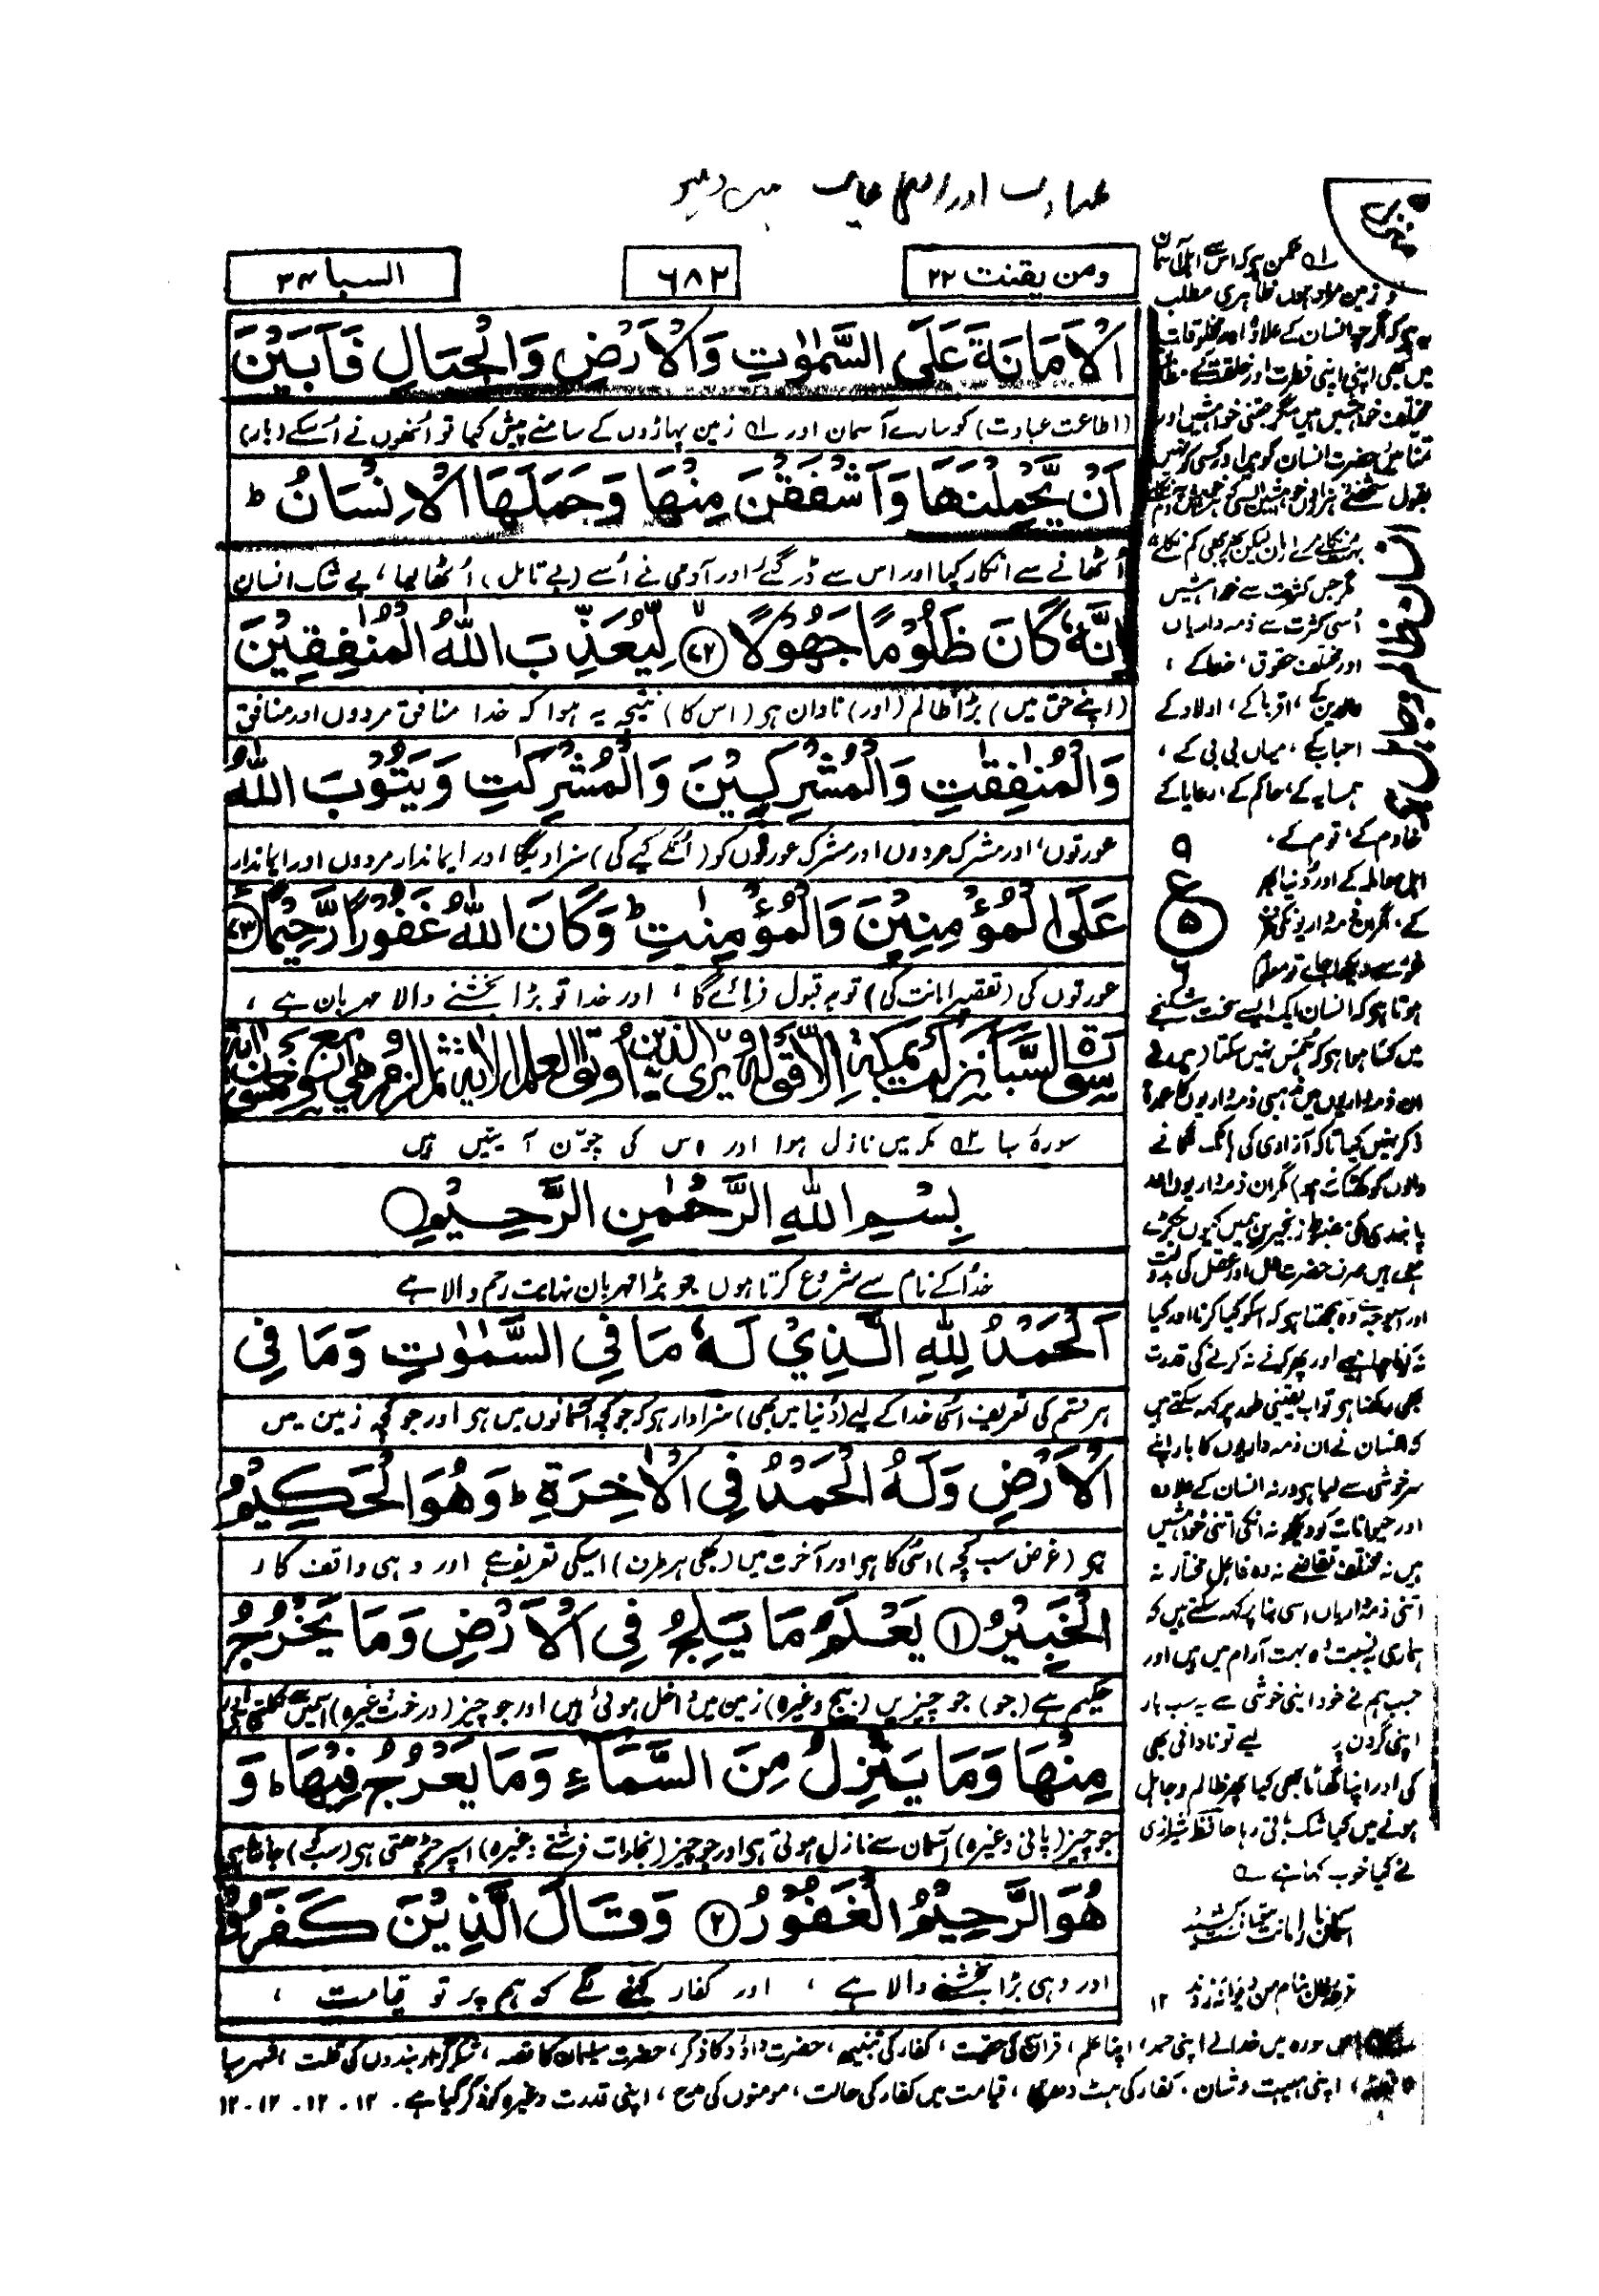 ومن یقنت ۲۲
۶۸۲
السبا ۳۴
الْاَمَانَةَ عَلَى السَّمٰوٰتِ وَالْاَرْضِ وَالْجِبَالِ فَاَبَيْنَ
(اطاعت عبادت) کو سارے آسمان اور لہ زمین پہاڑوں کے سامنے پیش کیا تو انھوں نے اُسکے (بار)
اَنْ يَّحْمِلْنَهَا وَاَشْفَقْنَ مِنْهَا وَحَمَلَهَا الْاِنْسَانُ ؕ
اُٹھانے سے انکار کیا اور اس سے ڈر گئے اور آدمی نے اُسے (بے تامل) اُٹھا لیا، بے شک انسان
اِنَّهٗ كَانَ ظَلُوْمًا جَهُوْلًا ۷۲ لِّيُعَذِّبَ اللّٰهُ الْمُنٰفِقِيْنَ
(اپنے حق میں) بڑا ظالم (اور) نادان ہو (اس کا) نتیجہ یہ ہوا کہ خدا منافق مردوں اور منافق
وَالْمُنٰفِقٰتِ وَالْمُشْرِكِيْنَ وَالْمُشْرِكٰتِ وَيَتُوْبَ اللّٰهُ
عورتوں، اور مشرک مردوں اور مشرک عورتوں کو (انکے کیے کی) سزا دیگا اور ایماندار مردوں اور ایماندار
عَلَى الْمُؤْمِنِيْنَ وَالْمُؤْمِنٰتِ ؕ وَكَانَ اللّٰهُ غَفُوْرًا رَّحِيْمًا ۷۳
عورتوں کی (تقصیر امانت کی) توبہ قبول فرمائے گا، اور خدا تو بڑا بخشنے والا مہربان ہے،
سورۃ السبا نزلت بمکۃ الا قولہ و یری الذین اوتوا العلم الآیۃ
سورۂ سبا مکہ میں نازل ہوا اور اس کی چوّن آیتیں ہیں
بِسْمِ اللّٰهِ الرَّحْمٰنِ الرَّحِيْمِ
خدا کے نام سے شروع کرتا ہوں جو بڑا مہربان نہایت رحم والا ہے
اَلْحَمْدُ لِلّٰهِ الَّذِيْ لَهٗ مَا فِي السَّمٰوٰتِ وَمَا فِي
ہر قسم کی تعریف اُسی خدا کے لیے (دُنیا میں بھی) سزاوار ہو کہ جو کچھ آسمانوں میں ہو اور جو کچھ زمین میں
الْاَرْضِ وَلَهُ الْحَمْدُ فِي الْاٰخِرَةِ ؕ وَهُوَ الْحَكِيْمُ
ہو (غرض سب کچھ) اُسی کا ہو اور آخرت میں (بھی ہر طرف) اُسیکی تعریف ہے اور وہی واقف کار
الْخَبِيْرُ ۱ يَعْلَمُ مَا يَلِجُ فِي الْاَرْضِ وَمَا يَخْرُجُ
حکیم ہے (جو) جو چیزیں (بیج وغیرہ) زمین میں داخل ہوئی ہیں اور جو چیز (درخت وغیرہ) اسمیں سے نکلتی ہی
مِنْهَا وَمَا يَنْزِلُ مِنَ السَّمَآءِ وَمَا يَعْرُجُ فِيْهَا ؕ وَ
جو چیز (پانی وغیرہ) آسمان سے نازل ہوتی ہی اور جو چیز (بخارات فرشتے وغیرہ) اسپر چڑھتی ہی (سب کو) جانتا ہی
هُوَ الرَّحِيْمُ الْغَفُوْرُ ۲ وَقَالَ الَّذِيْنَ كَفَرُوْا
اور وہی بڑا بخشنے والا ہے، اور کفار کہنے لگے کہ ہم پر تو قیامت،
لہ ممکن ہو کہ اس سے اہل آسمان
و زمین مراد ہوں ظاہری مطلب
یہ ہو کہ اگرچہ انسان کے علاوہ اور مخلوقات
میں بھی اپنی اپنی فطرت اور خلقت کے
مختلف خواہشیں ہیں مگر جتنی خواہشیں اور
تمنائیں حضرت انسان کو ہیں اور کسی کو نہیں
بقول شخصے ہزاروں خواہشیں ایسی کہ ہر خواہش پہ دم نکلے
بہت نکلے مرے ارمان لیکن پھر بھی کم نکلے
مگر جس کثرت سے خواہشیں
اُسی کثرت سے ذمہ داریاں
اور مختلف حقوق، خدا کے،
والدین کے، اقربا کے، اولاد کے
احباب کے، میاں بی بی کے،
ہمسایہ کے، حاکم کے، رعایا کے
خادم کے، قوم کے،
۹
ع
۵
۶
اہل محلہ کے اور دُنیا بھر
کے، اگر ان ذمہ داریوں کو
غور سے دیکھا جائے تو معلوم
ہوتا ہو کہ انسان ایک ایسے سخت شکنجے
میں کسا ہوا ہو کہ جنبش نہیں کر سکتا (ہم نے
ان ذمہ داریوں میں مذہبی ذمہ داریوں کا عمداً
ذکر نہیں کیا تاکہ آزادی کی ہانک لگانے
والوں کو کھٹکا نہ ہو) مگر ان ذمہ داریوں اور
پابندی کی مضبوط زنجیریں ہمیں کیوں جکڑے
ہوئے ہیں صرف حضرت دل اور عقل کی بدولت
اور اسی وجہ سے وہ سمجھتا ہو کہ اسکو کیا کرنا اور کیا
نہ کرنا چاہیے اور پھر کرنے نہ کرنے کی قدرت
بھی رکھتا ہو تو اب یقینی طور پر کہہ سکتے ہیں
کہ انسان نے ان ذمہ داریوں کا بار اپنے
سر خوشی سے لیا ہو ورنہ انسان کے علاوہ
اور حیوانات کو دیکھو نہ انکی اتنی خواہشیں
ہیں نہ مختلف تقاضے نہ وہ فاعل مختار نہ
اتنی ذمہ داریاں اسی بنا پر کہہ سکتے ہیں کہ
ہماری بہ نسبت وہ بہت آرام میں ہیں اور
جب ہم نے خود اپنی خوشی سے یہ سب بار
اپنی گردن پر لیے تو نادانی بھی
کی اور اپنا گھاٹا بھی کیا پھر ظالم و جاہل
ہونے میں کیا شک باقی رہا حافظ شیرازی
نے کیا خوب کہا ہے
آسماں بار امانت نتوانست کشید
قرعۂ فال بنام من دیوانہ زدند ۱۲
اس سورہ میں خدا نے اپنی حمد، اپنا علم، قرآن کی حقیت، کفار کی تنبیہ، حضرت داؤد کا ذکر، حضرت سلیمان کا قصہ، شکر گزار بندوں کی قلت، شہر سبا
کا قصہ، اپنی ہیبت و شان، کفار کی ہٹ دھرمی، قیامت میں کفار کی حالت، مومنوں کی مدح، اپنی قدرت وغیرہ کو ذکر کیا ہے۔ ۱۲۔ ۱۲۔ ۱۲۔ ۱۲